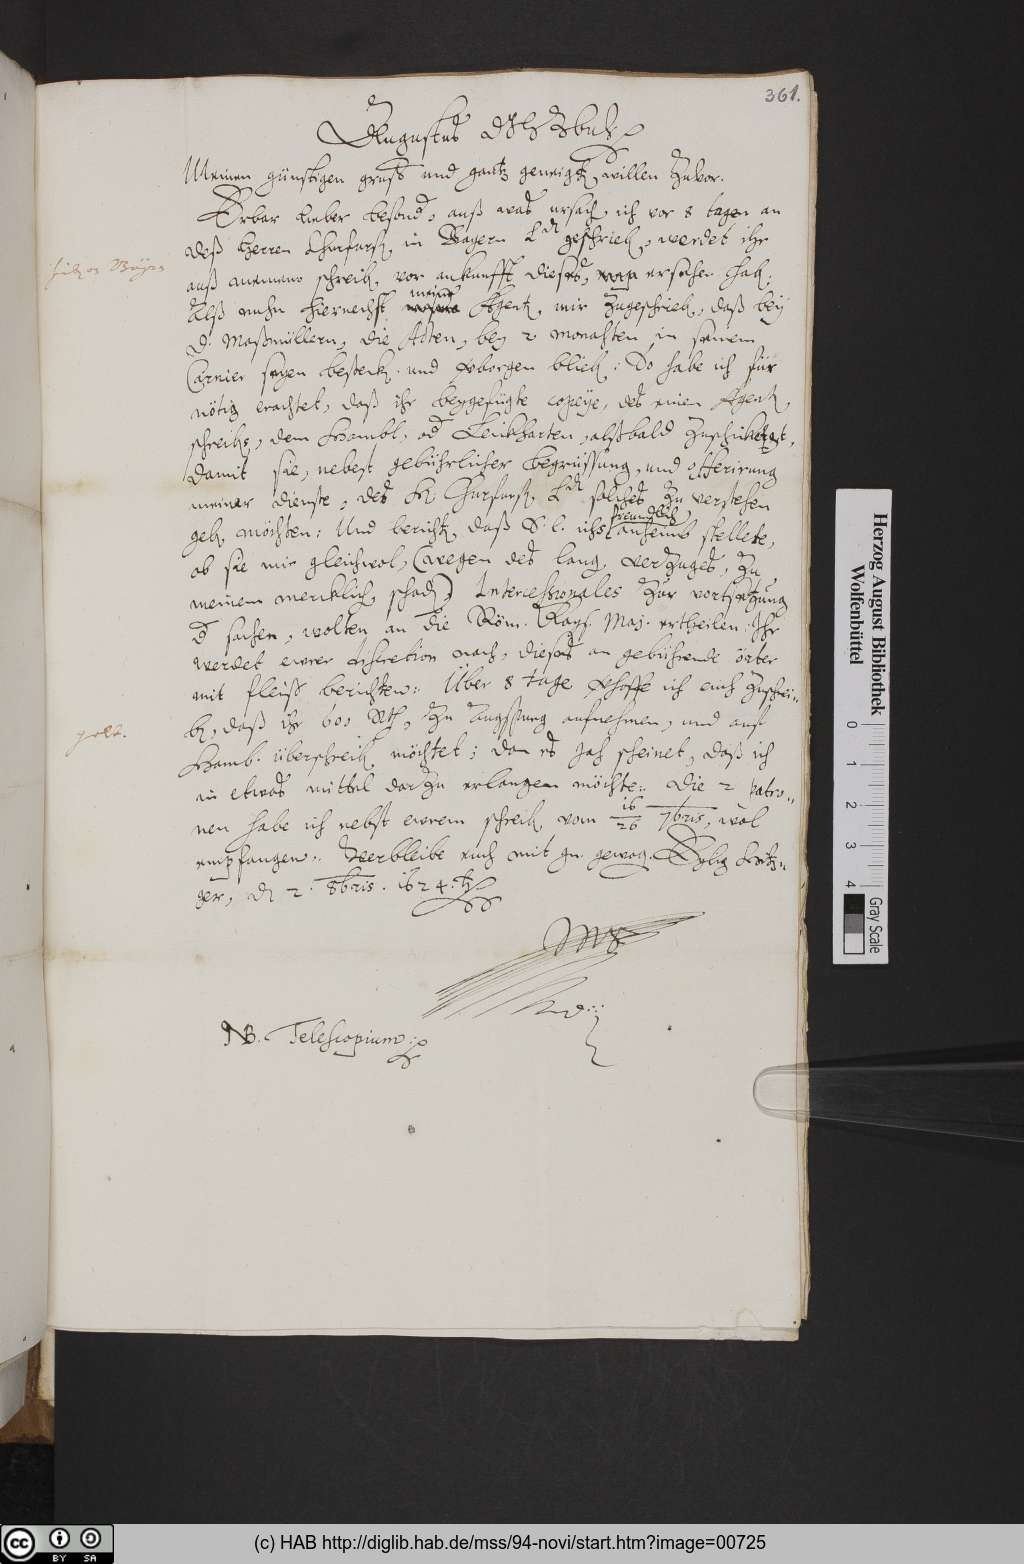 361.
Augustus
Meinen günstigen gruß und gantz geneigt. willen zuvor.
Erbar lieber besond., auß was ursach, ich vor 8 tagen an
deß Herren Churfürst. in Bayern Ld. geschrieb., werdet ihr
auß meinem schreib. vor ankunfft dieses, ersehen hab.
Alß nuhn hiernechst meine Agent. mir zugeschrieb., daß bey
d. Maßmüllern, die Acten, bey 2 monahten in seinem
Carnier seyen besteckt. und verborgen blieb.: So habe ich für
nötig erachtet, daß ihr beygefügte copeye, des einen Agent.
schreibs, dem od. Leuckharten, alßbald zuschicket,
damit sie, nebest gebührlicher begrüssung, und offerirung
meiner dienste, des H. Churfürst. Ld. solches zu verstehen
geb. möchten: Und bericht. daß S. l. ichs freundlich
anheimb stellete,
ob sie mir gleichwol, (wegen des lang. verzuges, zu
meinem mercklich. schad.) Intercessionales zur vortsetzung
d. sachen, wolten an die Röm. Kays. Maj. ertheilen. Ihr
werdet ewrer discretion nach, dieses an gebührende örter
mit fleiß berichten: Über 8 tage, verhoffe ich euch zuschrei-
b., daß ihr 600 Rth. zu Augspurg aufnehmen, und auf
Hamb. überschreib. möchtet; dan es sich scheinet, daß ich
in etwas mittel darzu erlangen möchte: Die 2 patro-
nen habe ich nebst ewrem schreib. vom 16/26 7bris, wol
empfangen: Verbleibe euch mit gn. gewog. Hitz-
ger, d. 2. 8bris. 1624.
NB. Telescopium
geldt.
Herzog August Bibliothek
Wolfenbüttel
0 1 2 3 4
Gray Scale
cc BY SA
(c) HAB http://diglib.hab.de/mss/94-novi/start.htm?image=00725